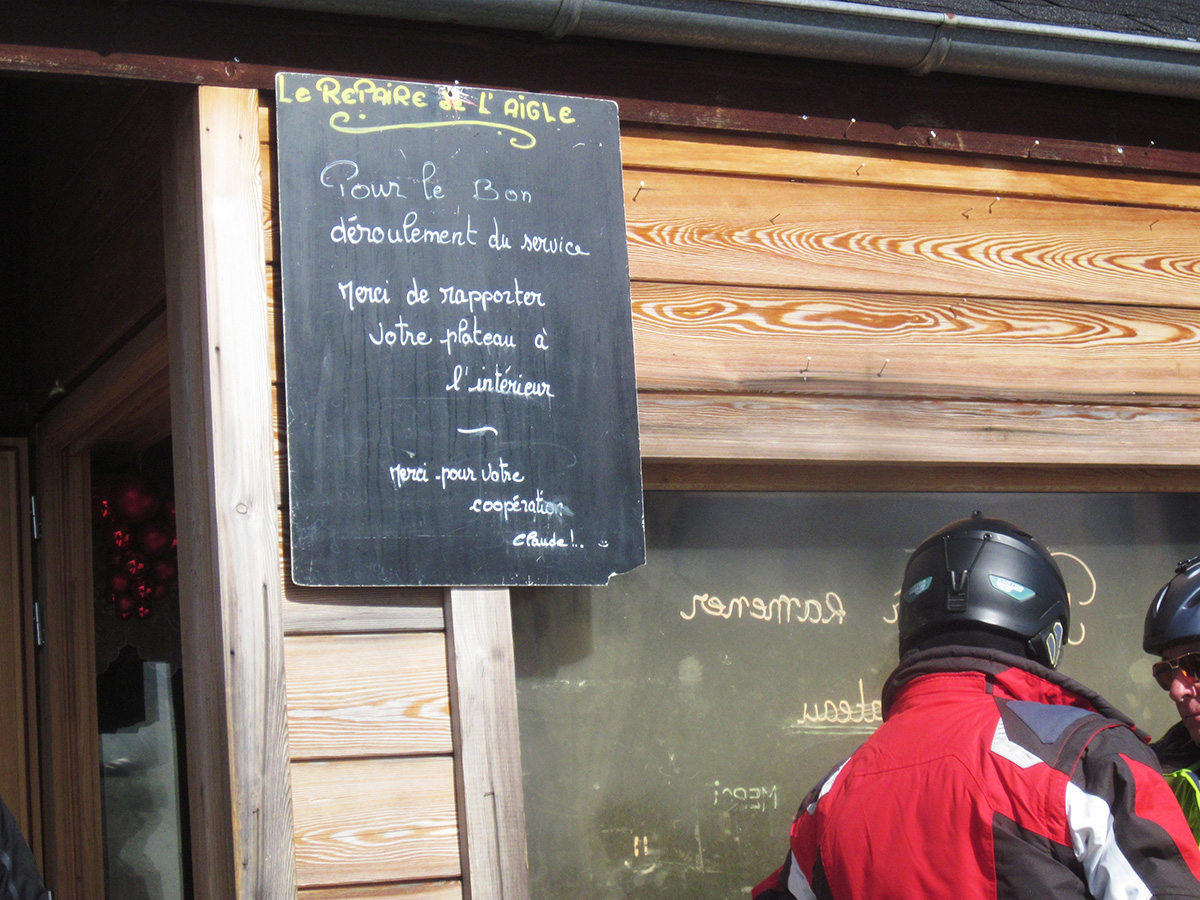 Le RePAiRe de L'AiGLe
Pour le Bon
déroulement du service
Merci de rapporter
votre plateau à
l'intérieur
~
Merci pour votre
coopération
Claude!.. :)
Ramener
plateau
MERCI
!!